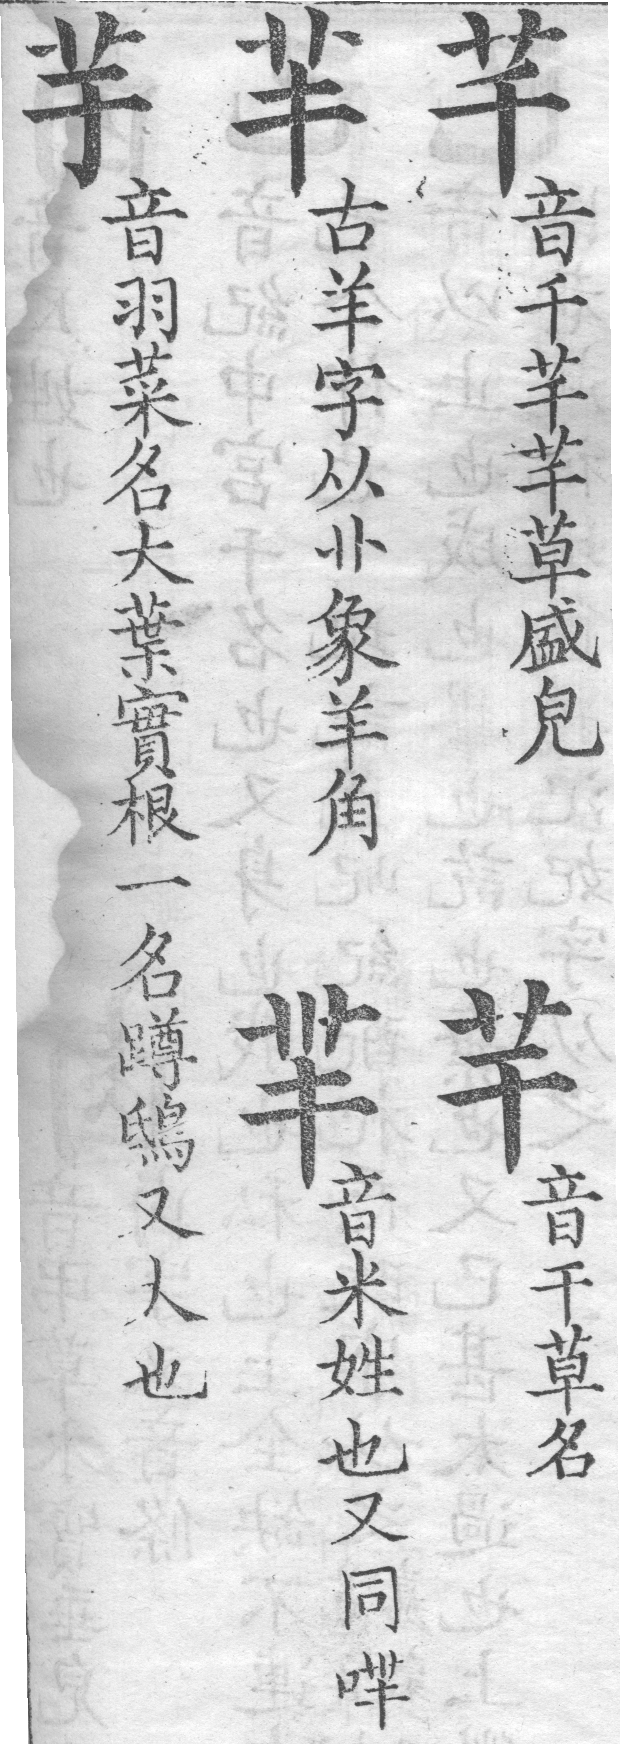 芊 音千芊芊草盛皃
芉 音干草名
𦍌 古羊字从丷象羊角
芈 音米姓也又同哶
芋 音羽菜名大葉實根一名蹲鴟又人也